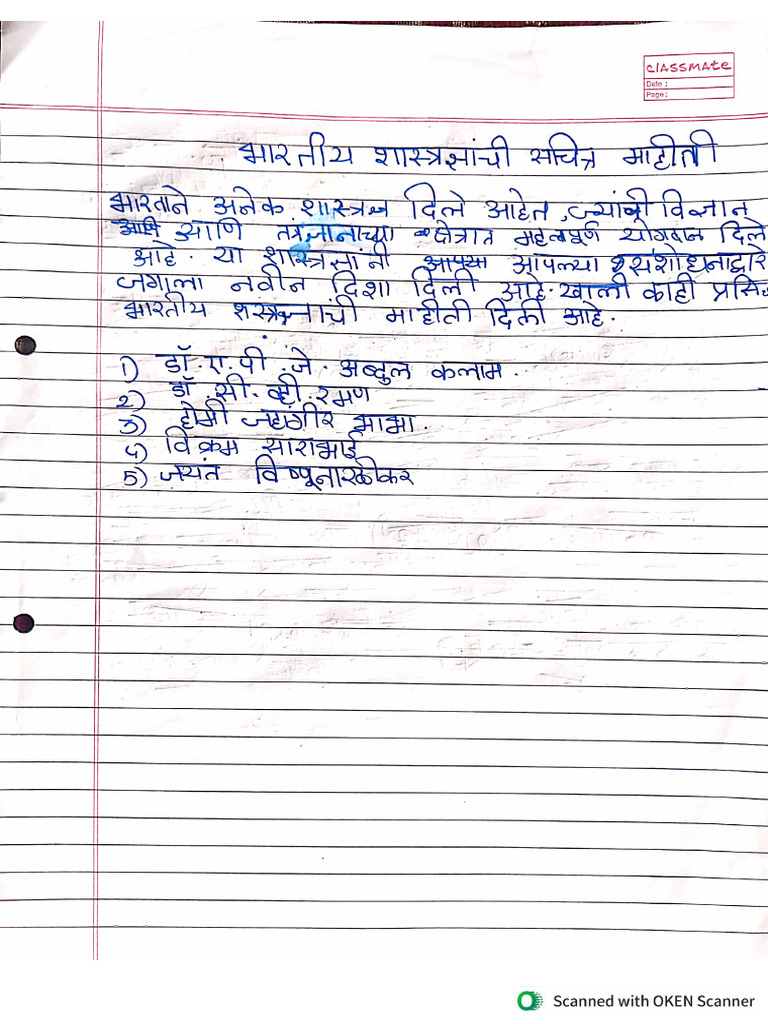 classmate
Date :
Page :
भारतीय शास्त्रज्ञांची सचित्र माहीती
भारताने अनेक शास्त्रज्ञ दिले आहेत ज्यांनी विज्ञान
आणि तंत्रज्ञानाच्या क्षेत्रात महत्वपूर्ण योगदान दिले
आहे. या शास्त्रज्ञांनी आपल्या संशोधनाद्वारे
जगाला नवीन दिशा दिली आहे. खाली काही प्रसि
भारतीय शस्त्रज्ञांची माहीती दिली आहे.
1) डॉ. ए. पी. जे. अब्दुल कलाम.
2) डॉ. सी. व्ही. रमण
3) होमी जहांगीर भाभा.
4) विक्रम साराभाई
5) जयंत विष्णूनारळीकर
Scanned with OKEN Scanner